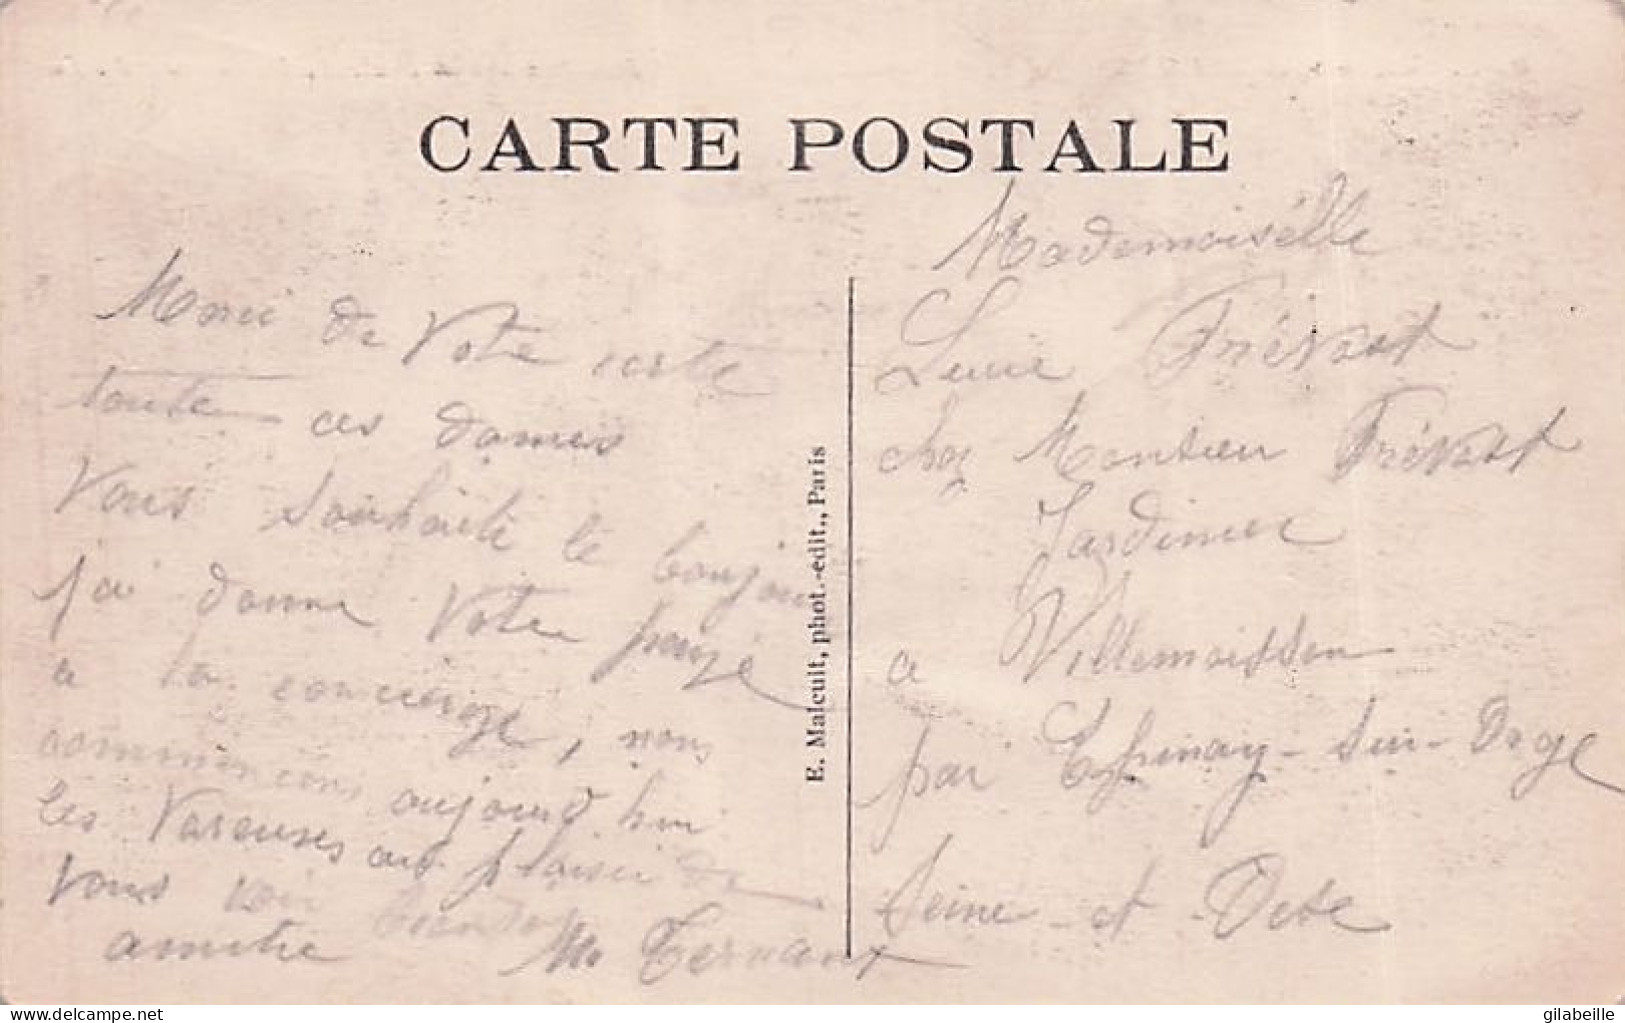 CARTE POSTALE
Merci de Votre carte
toute ces dames
Vous souhaite le bonjour
j'ai donne Votre
a la concierge, nous
commencons aujourd'hui
les Vareuses au plaisir de
Vous voir
amitie M Ternant
E. Malcuit, phot.-édit., Paris
Mademoisélle
Lucie Prévost
chez Monsieur Prévost
Jardinier
a Villemoisson
par Epinay-sur-Orge
Seine-et-Oise
www.delcampe.net
gilabeille